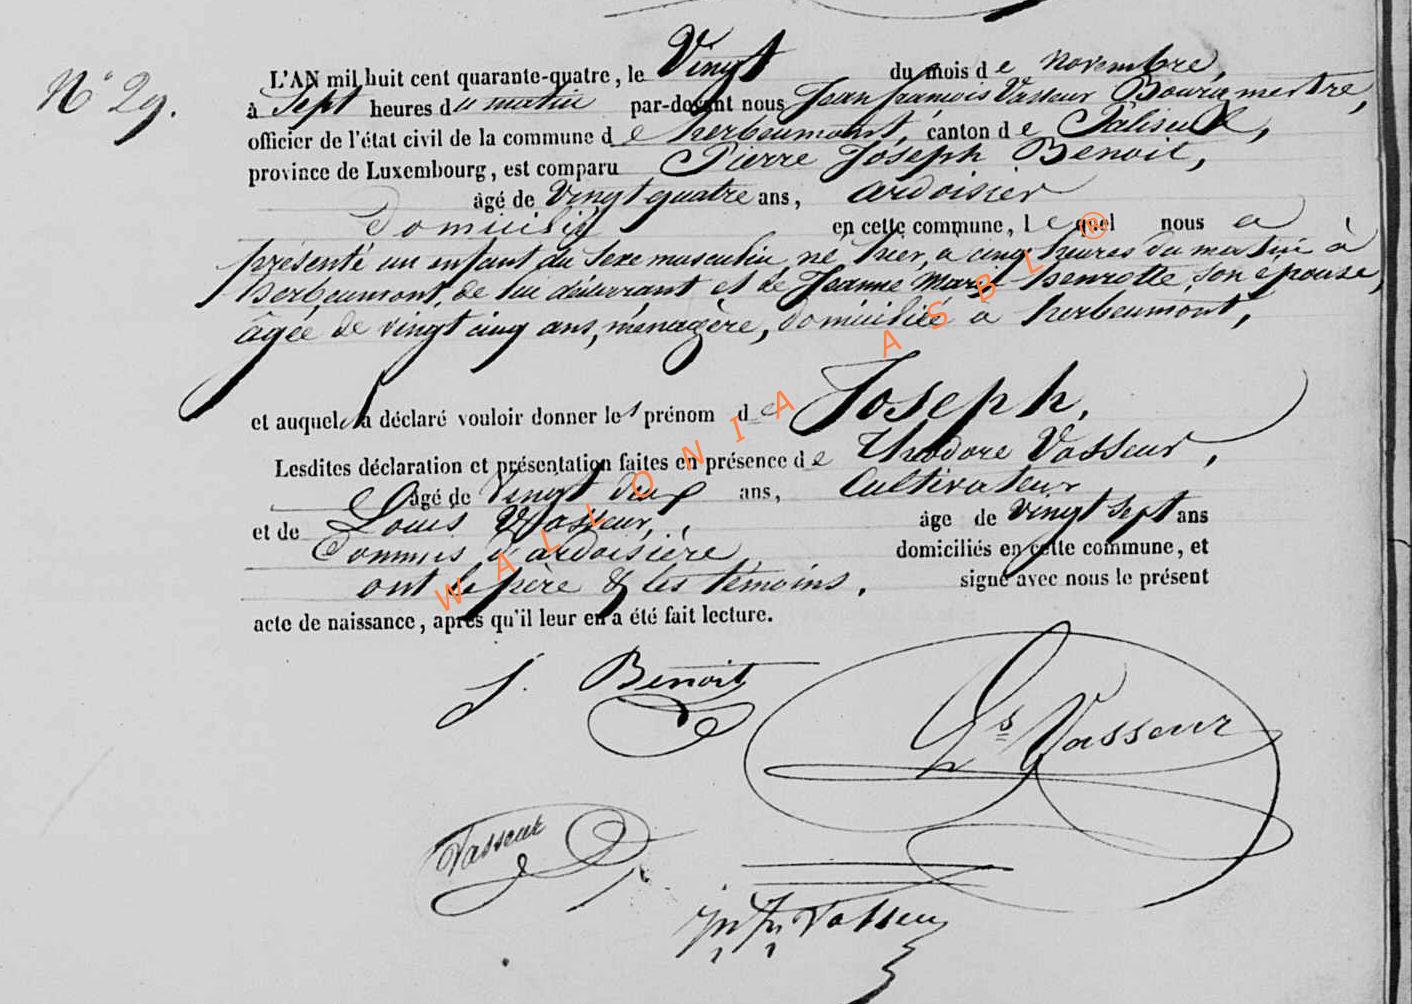 N° 29.
L'AN mil huit cent quarante-quatre, le Vingt du mois de novembre,
à Sept heures du matin par-devant nous Jean françois Vasseur Bourgmestre,
officier de l'état civil de la commune de herbeumont, canton de Paliseul,
province de Luxembourg, est comparu Pierre Joseph Benoit,
âgé de Vingt quatre ans, ardoisier
Domicilié en cette commune, lequel nous a
présenté un enfant du sexe masculin, né hier, a cinq heures du matin à
herbeumont, de lui déclarant et de Jeanne Marie henrotte, son epouse,
âgée de vingt cinq ans, ménagère, domiciliée a herbeumont,
et auquel il a déclaré vouloir donner le prénom de Joseph.
Lesdites déclaration et présentation faites en présence de Théodore Vasseur,
âgé de Vingt deux ans, Cultivateur
et de Louis Vasseur, âgé de vingt sept ans
Commis d'ardoisière domiciliés en cette commune, et
ont le père & les témoins. signé avec nous le présent
acte de naissance, après qu'il leur en a été fait lecture.
J. Benoit
Ls Vasseur
Vasseur
Jn fs Vasseur
WALLONIA ASBL ®